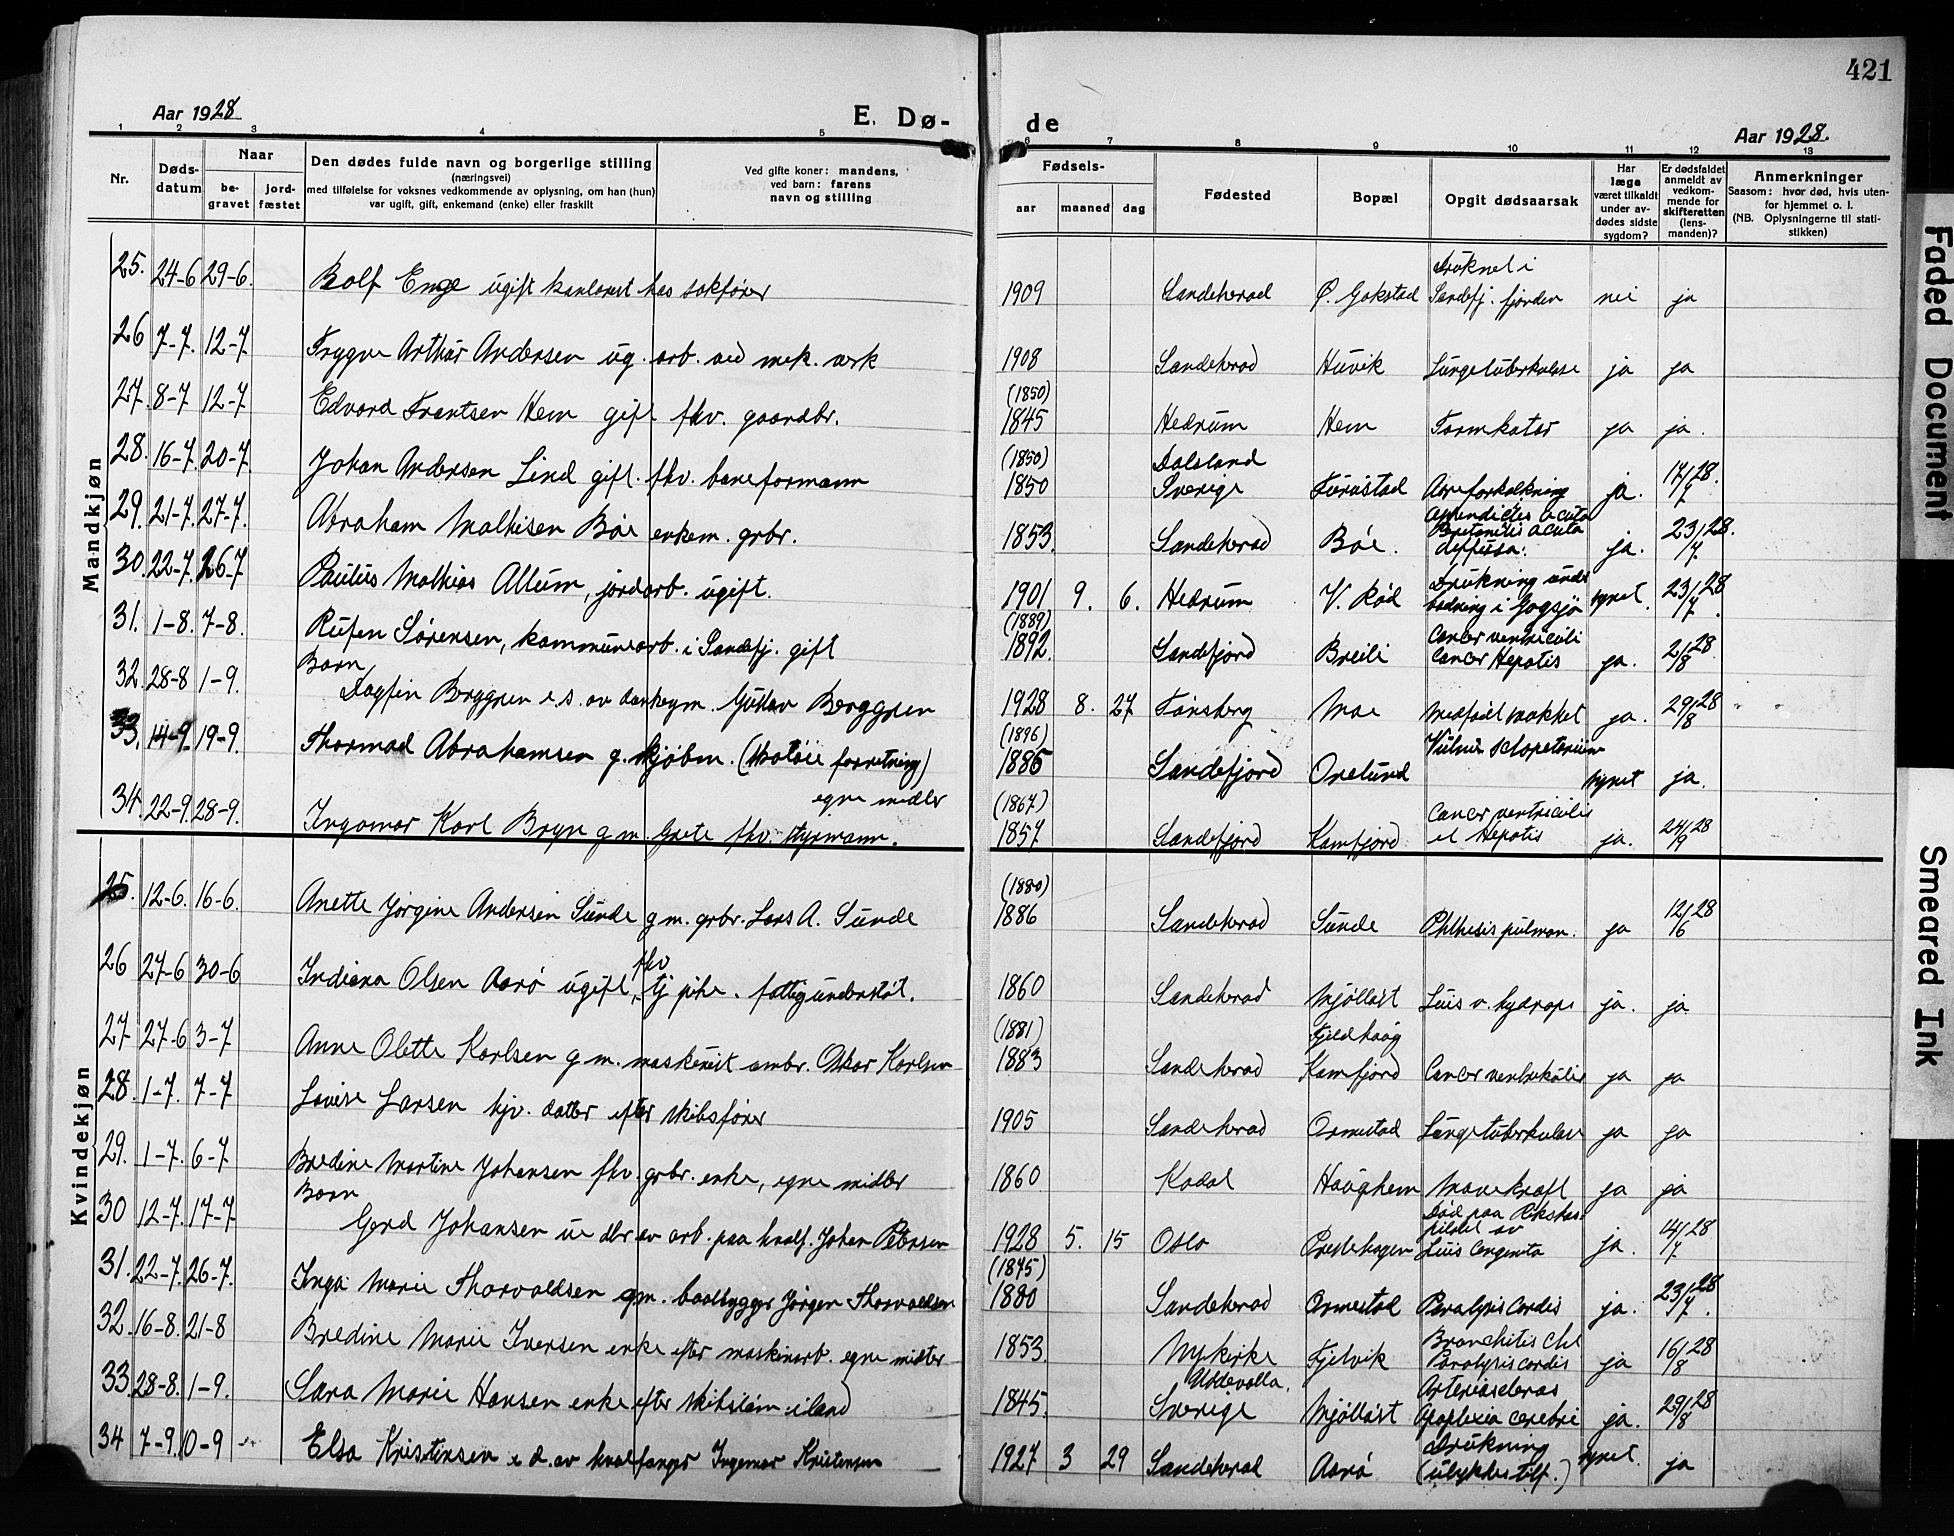 421
Aar 1928
E. Dø-
de
Aar 1928.
1 2 3 4 5 6 7 8 9 10 11 12 13
Nr.
Døds-
datum
Naar
be-
gravet
jord-
fæstet
Den dødes fulde navn og borgerlige stilling
(næringsvei)
med tilføielse for voksnes vedkommende av oplysning, om han (hun)
var ugift, gift, enkemand (enke) eller fraskilt
Ved gifte koner: mandens,
ved barn: farens
navn og stilling
Fødsels-
aar
maaned
dag
Fødested
Bopæl
Opgit dødsaarsak
Har
læge
været tilkaldt
under av-
dødes sidste
sygdom?
Er dødsfaldet
anmeldt av
vedkom-
mende for
skifteretten
(lens-
manden)?
Anmerkninger
Saasom: hvor død, hvis uten-
for hjemmet o. l.
(NB. Oplysningerne til stati-
stikken)
Mandkjøn
25. 24-6 29-6. Rolf Enge ugift kontorist hos sakfører 1909 Sandeherad Ø. Gokstad Druknet i Sandefj. fjorden nei ja
26 7-7. 12-7 Trygve Arthur Andersen ug. arb. ved mek. verk 1908 Sandeherad Huvik Lungetuberkulose ja ja
27. 8-7 12-7 Edvard Frantsen Hem gift fhv. gaardbr. (1850) 1845 Hedrum Hem ja ja.
28. 16-7 20-7. Johan Andersen Lind gift. fhv. baneformann (1850) 1850 Dalsland Sverige Furustad Aareforkalkning ja. 28.
29. 21-7. 27-7. Abraham Mathisen Bøe enkem. grbr. 1853. Sandeherad Bøe. Appendicites acuta Peretonitis acuta diffusa. ja. 23/7 28.
30. 22-7. 26-7 Paulus Mathias Allum, jordarb. ugift. 1901 9. 6. Hedrum V. Rød Drukning under badning i Gogsjø synet. 23/7 28
31. 1-8. 7-8. Rufen Sørensen, kommunearb. i Sandefj. gift (1889) 1892. Sandefjord Breili Cancer ventriculi Cancer Hepatis ja. 2/8 28.
32. 28-8 1-9. Barn Dagfin Berggren e.s. av Gustav Berggren 1928 8. 27 Tønsberg Moe Medfødt svakhet ja. 29/8 28
33. 14-9. 19-9. Thormod Abrahamsen g. kjøbm. (Skotøi forretning) (1896) 1886 Sandefjord Orelund Vulnus sclopetarium synet ja.
34. 22-9. 28-9. Ingomar Karl Bryn g.m. Grete fhv. styrmann. egne midler (1867) 1857 Sandefjord Kamfjord Cancer ventriculi et Hepatis ja. 24/9 28
Kvindekjøn
25. 12-6. 16-6. Anette Jørgine Andersen Sunde g.m. grbr. Lars A. Sunde (1880) 1886 Sandeherad Sunde Phthisis pulmon. ja 12/6 28
26 27-6 30-6 Indiana Olsen Aarø ugift, fhv tj pike. fattigunderstøt. 1860 Sandeherad Mjølløst Luis v. hydrops ja. ja
27 27-6 3-7 Anne Olette Karlsen g.m. maskinist ombr. Oskar Karlsen (1881) 1883 Sandeherad Fjeldhaug Kamfjord Cancer ventrikulis ja ja
28. 1-7. 7-7 Lovise Larsen hjv. datter efter skibsfører 1905 Sandeherad Ormestad Lungetuberkulose ja ja
29. 1-7. 6-7 Bredine Martine Johansen fhv. grbr. enke, egne midler 1860 Kodal Haughem Mavekræft ja ja
30 12-7. 17-7 Barn Gerd Johansen ue dtr av arb. paa hvalf. Johan Petersen 1928 5. 15 Oslo Prestehagen Død paa Rikshos- pitalet av Luis Congenita ja. 14/7 28
31. 22-7. 26-7. Inga Marie Thorvaldsen gm. baatbygger Jørgen Thorvaldsen (1875) 1880 Sandeherad Ormestad Paralysis Cordis ja. 23/7 28.
32. 16-8. 21-8 Bredine Marie Iversen enke efter maskinarb. egne midler 1853. Nykirke Fjelvik Bronchitis Chr Paralysis cordis ja 16/8 28
33. 28-8. 1-9. Sara Marie Hansen enke efter skibstøm. iland 1845. Uddevalla, Sverige Mjølløst Arteriascleros Apoplexia cerebri ja. 29/8 28
34 7-9. 10-9 Elsa Kristensen e d. av hvalfanger Ingemar Kristensen 1927 3 29 Sandeherad Aarø Drukning (ulykkestilf.) synet. ja
Faded Document
Smeared Ink